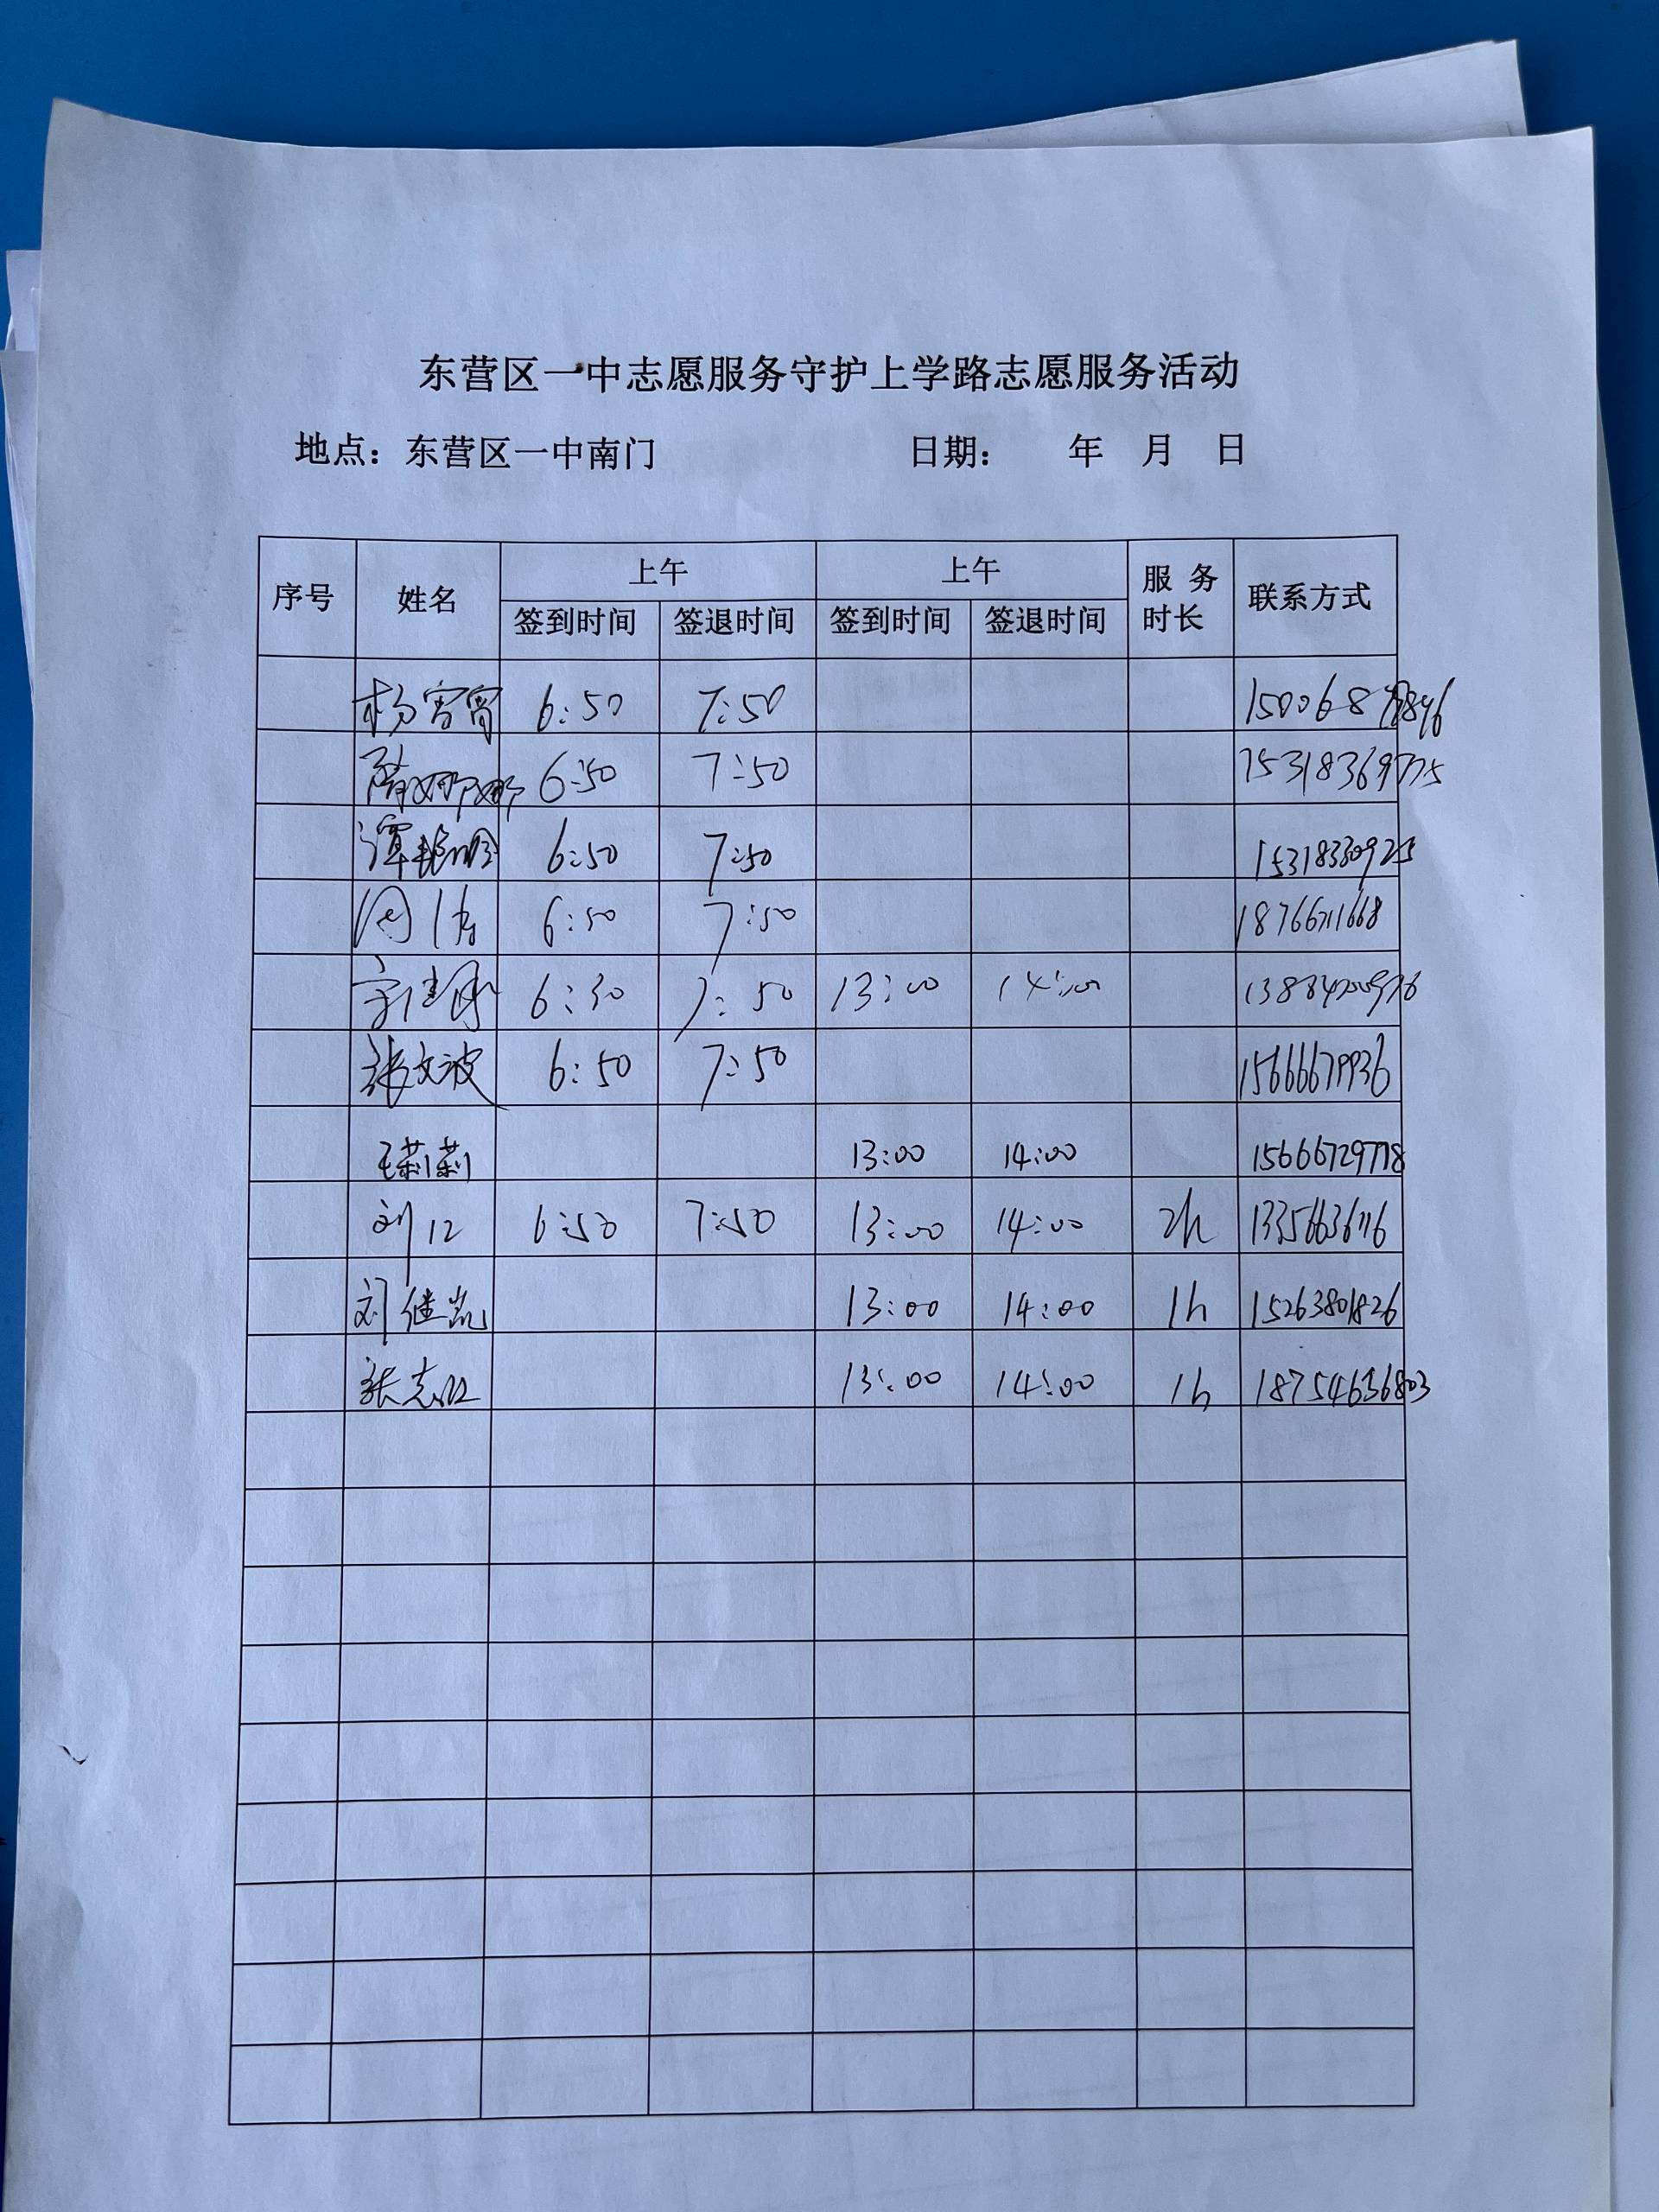 东营区一中志愿服务守护上学路志愿服务活动
地点：东营区一中南门 日期： 年 月 日
序号 姓名 上午 上午 服务时长 联系方式
签到时间 签退时间 签到时间 签退时间
杨宵宵 6:50 7:50
6:50 7:50 15318369775
谭艳明 6:50 7:50 15318330925
周倩 6:50 7:50 18766711668
6:30 7:50 13:00 14:00
张文波 6:50 7:50 15666679936
王莉莉 13:00 14:00 15666729778
刘江 6:50 7:50 13:00 14:00 2h 13356636116
刘继凯 13:00 14:00 1h 15263801826
张志红 13:00 14:00 1h 18754636803